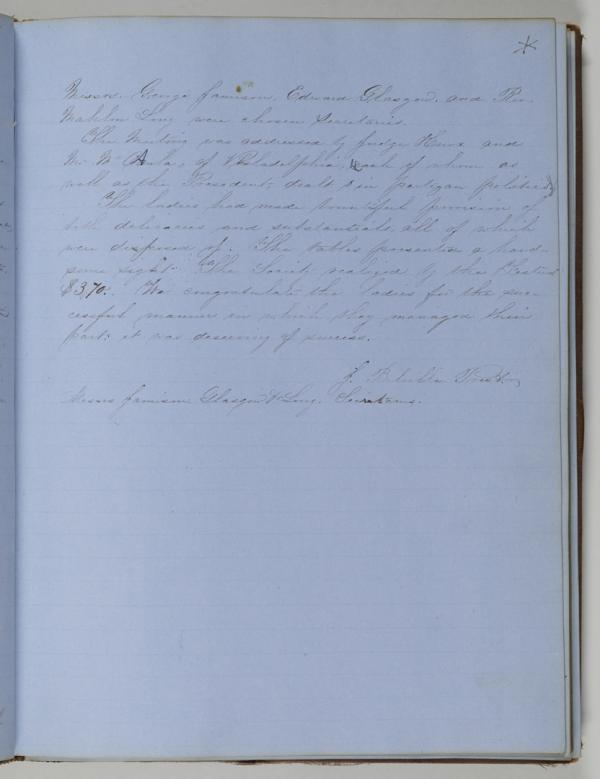 Messrs. George Jamison, Edward Glasgow, and Rev.
Mahlon Long were chosen Secretaries.
The Meeting was addressed by Judge Haws and
Mr. of Philadelphia, each of whom as
well as the President, dealt in partizan politics.
The ladies had made bountiful provision of
both delicacies and substantials, all of which
were disposed of. The tables presented a hand-
some sight. The Society realized by this
$370. We congratulate the ladies for the suc-
cessful manner in which they managed their
part; it was deserving of success.
J. Presdt
Messrs Jamison Glasgow & Long. Secretaries.